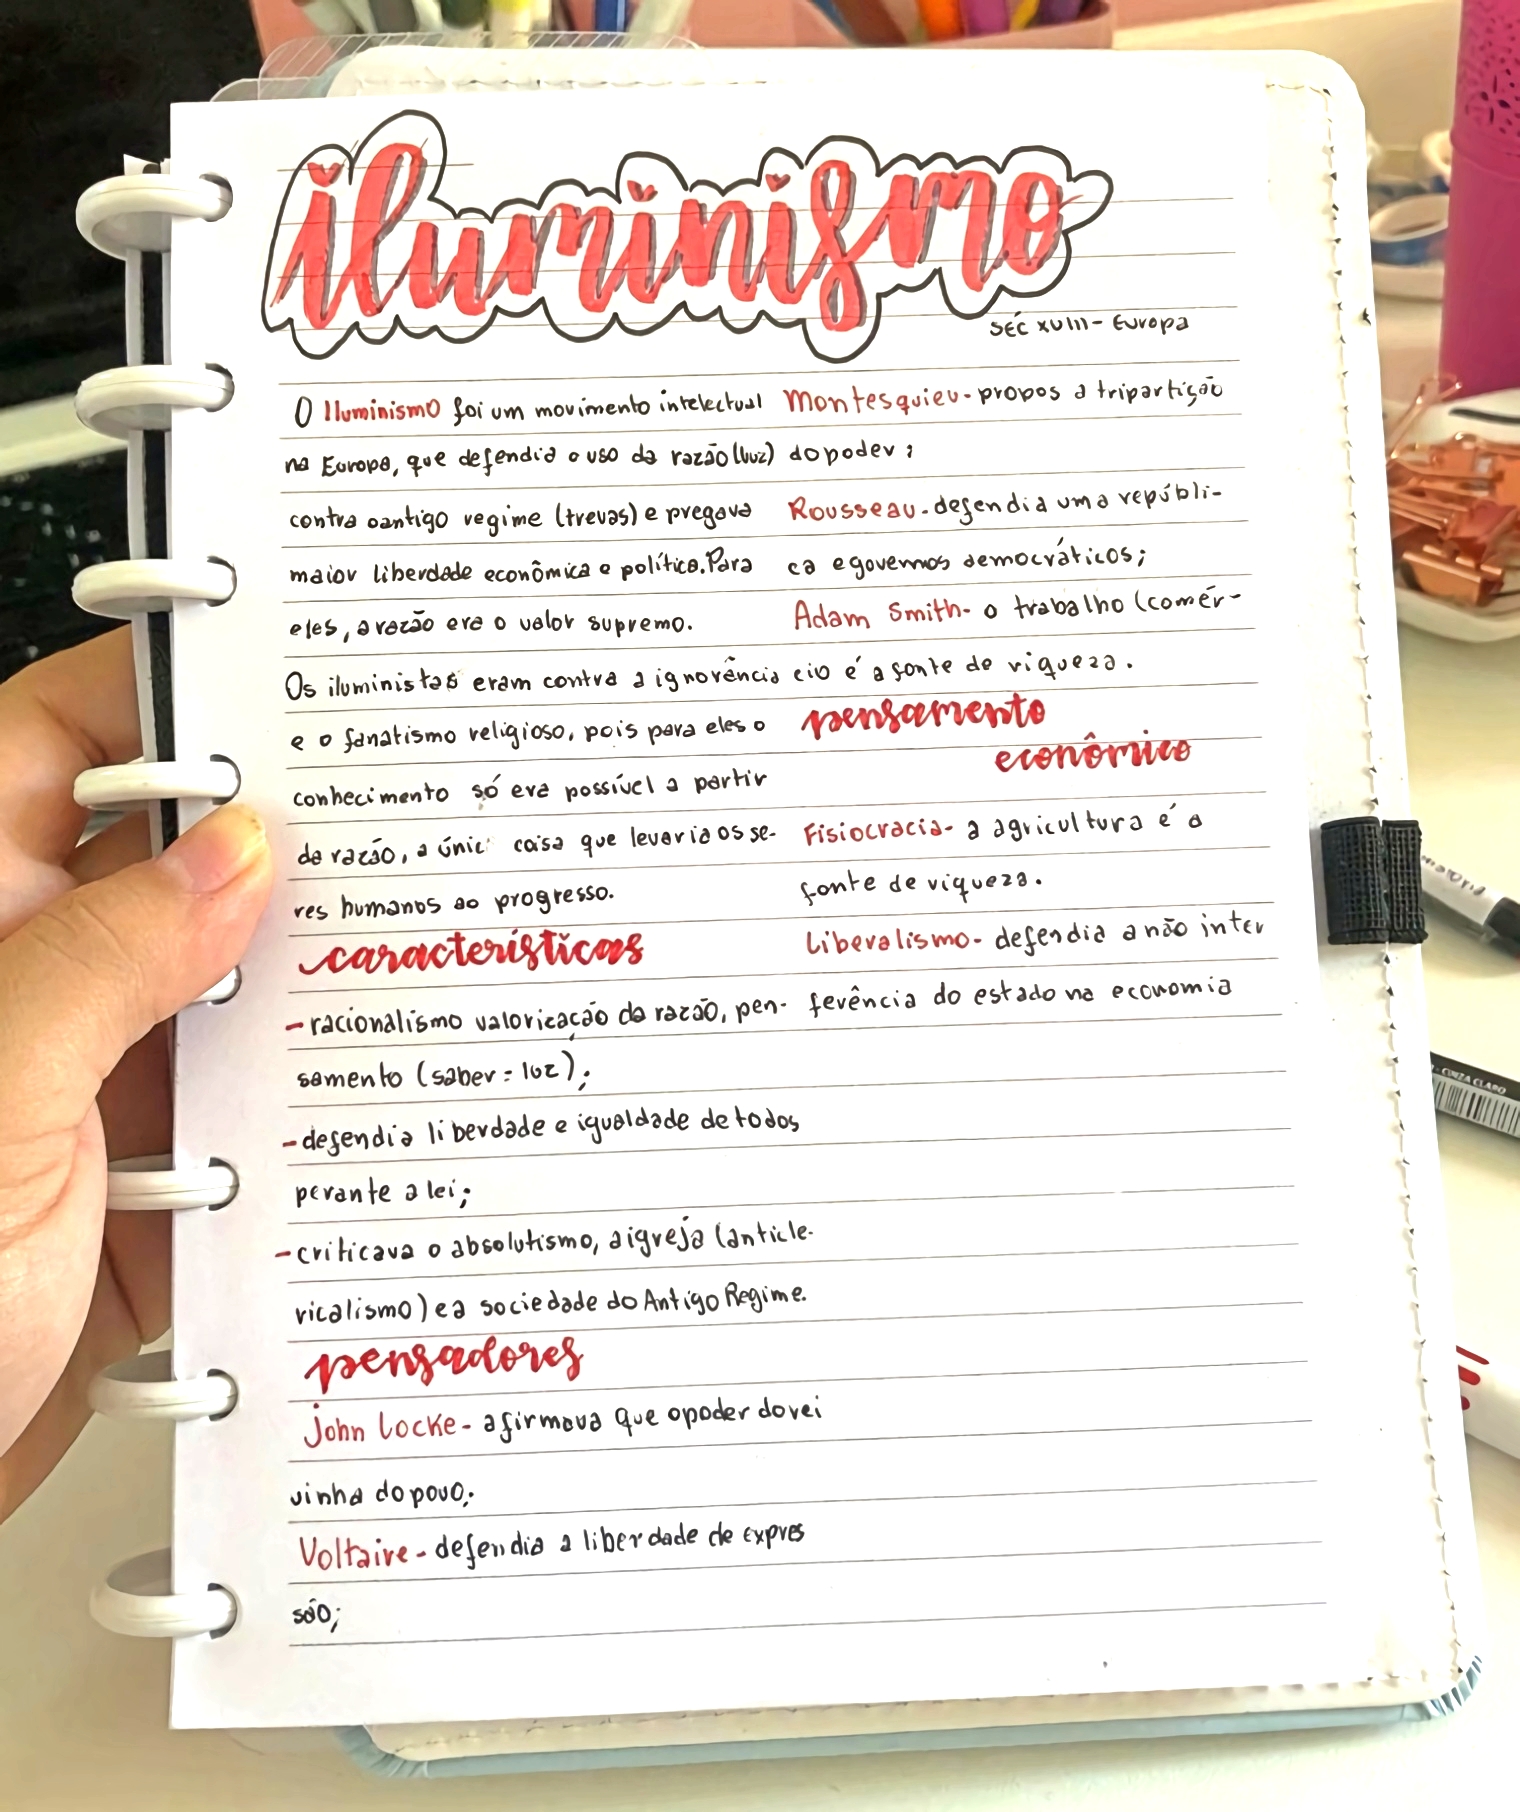 iluminismo
SÉC XVIII - Europa
O Iluminismo foi um movimento intelectual
na Europa, que defendia o uso da razão (luz)
contra o antigo regime (trevas) e pregava
maior liberdade econômica e política. Para
eles, a razão era o valor supremo.
Os iluministas eram contra a ignorância
e o fanatismo religioso, pois para eles o
conhecimento só era possível a partir
da razão, a únic coisa que levaria os se-
res humanos ao progresso.
características
- racionalismo valorização da razão, pen-
samento (saber = luz);
- defendia liberdade e igualdade de todos
perante a lei;
- criticava o absolutismo, a igreja (anticle-
ricalismo) e a sociedade do Antigo Regime.
pensadores
John Locke - afirmava que o poder do rei
vinha do povo;
Voltaire - defendia a liberdade de expres
são;
Montesquieu - propos a tripartição
do poder;
Rousseau - defendia uma repúbli-
ca e governos democráticos;
Adam Smith - o trabalho (comér-
cio é a fonte de riqueza.
pensamento
econômico
Fisiocracia - a agricultura é a
fonte de riqueza.
Liberalismo - defendia a não inter
ferência do estado na economia
CINZA CLARO